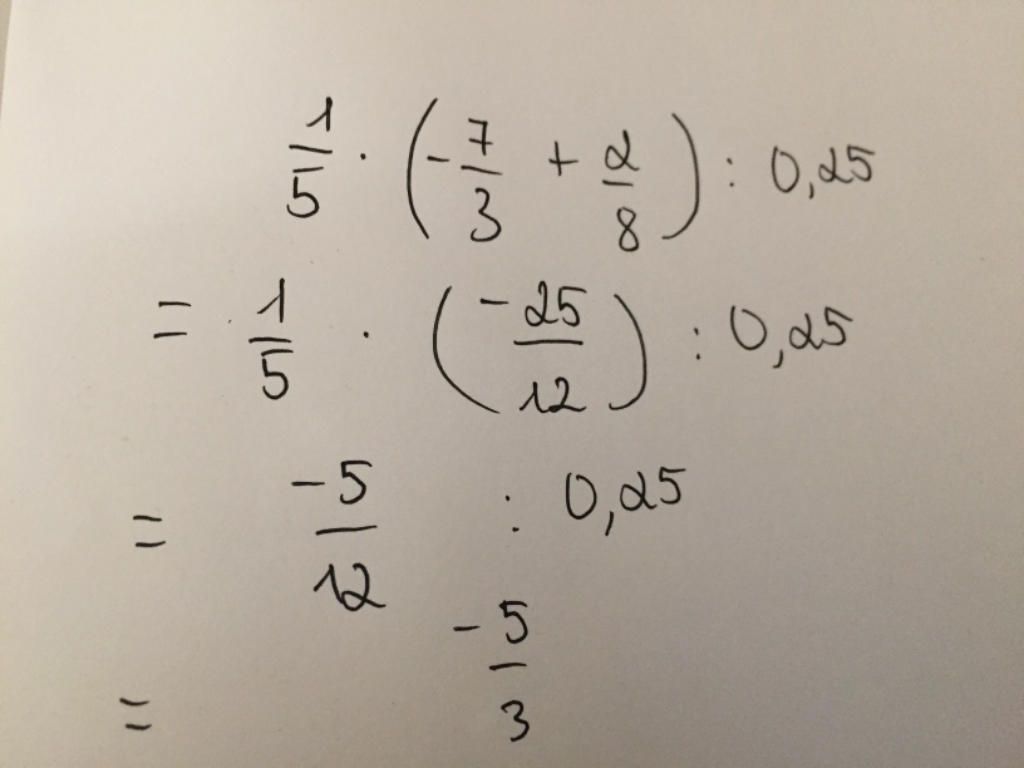 1/5 · (-7/3 + 2/8) : 0,25
= 1/5 · (-25/12) : 0,25
= -5/12 : 0,25
= -5/3